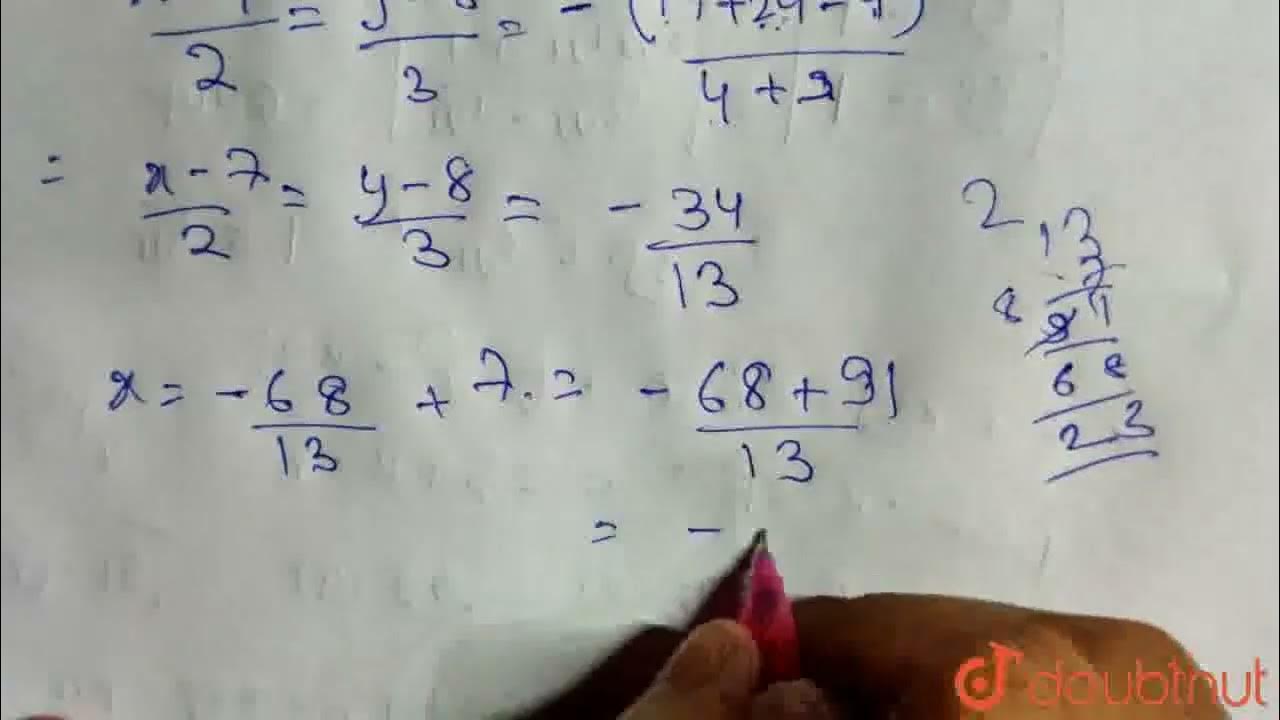 2 = 3 = - +24-
4+9
= x-7/2 = y-8/3 = - 34/13
x = -68/13 + 7. = - 68+91/13
= -
2
13
8
68
23
doubtnut